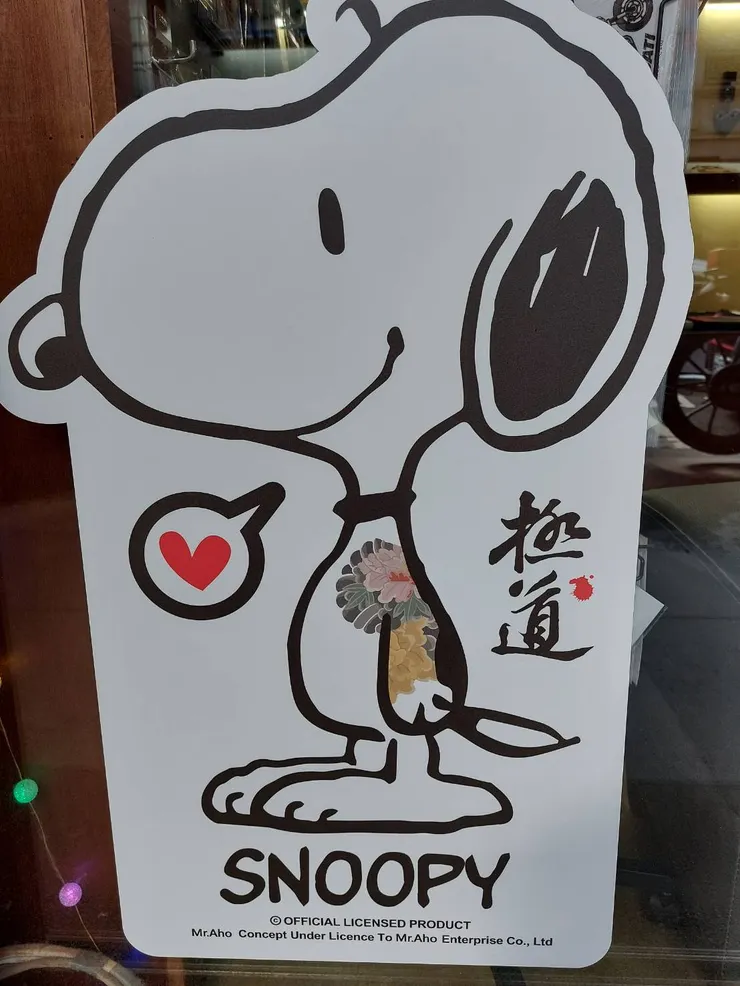 極
道
SNOOPY
© OFFICIAL LICENSED PRODUCT
Mr.Aho Concept Under Licence To Mr.Aho Enterprise Co., Ltd